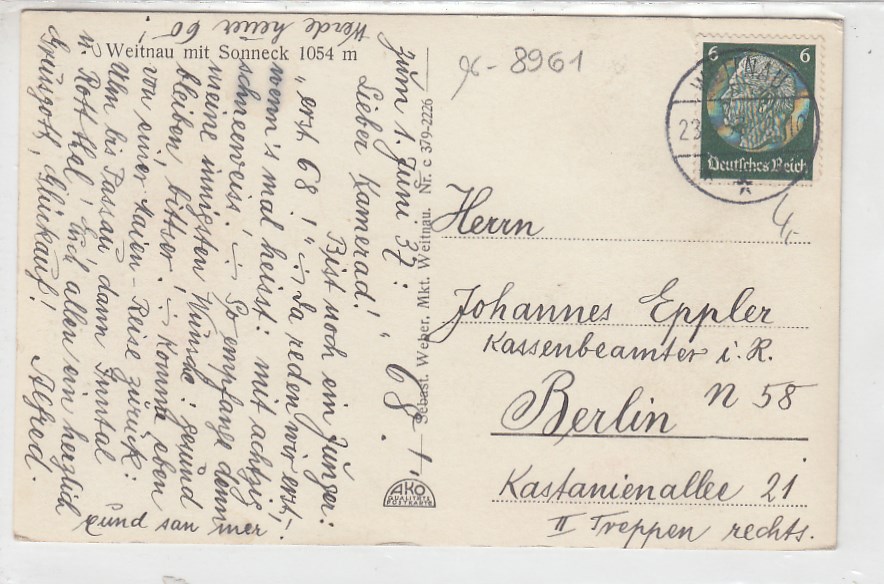 Weitnau mit Sonneck 1054 m
Zum 1. Juni 37:
„68.!“
Lieber Kamerad!
Bist noch ein Junger:
„erst 68!“ :-: Da reden wir erst,
wenn's mal heisst: mit achtzig
schneeweiss! :-: So empfange denn
meine innigsten Wünsche: gesund
bleiben, bitt'ser! :-: Komme eben
von einer Maien-Reise zurück:
Ulm bis Passau, dann Inntal
u. Rottthal! Und allen ein herzlich
Grüssgott, Glückauf! Alfred.
Werde heuer 60!
Gund san mer
Sebast. Weber. Mkt. Weitnau. Nr. c 379-2226
AKO
QUALITÄTS
POSTKARTE
8961
6 6
Deutsches Reich
WEITNAU
23
4,-
Herrn
Johannes Eppler
Kassenbeamter i. R.
Berlin N 58
Kastanienallee 21
II Treppen rechts.